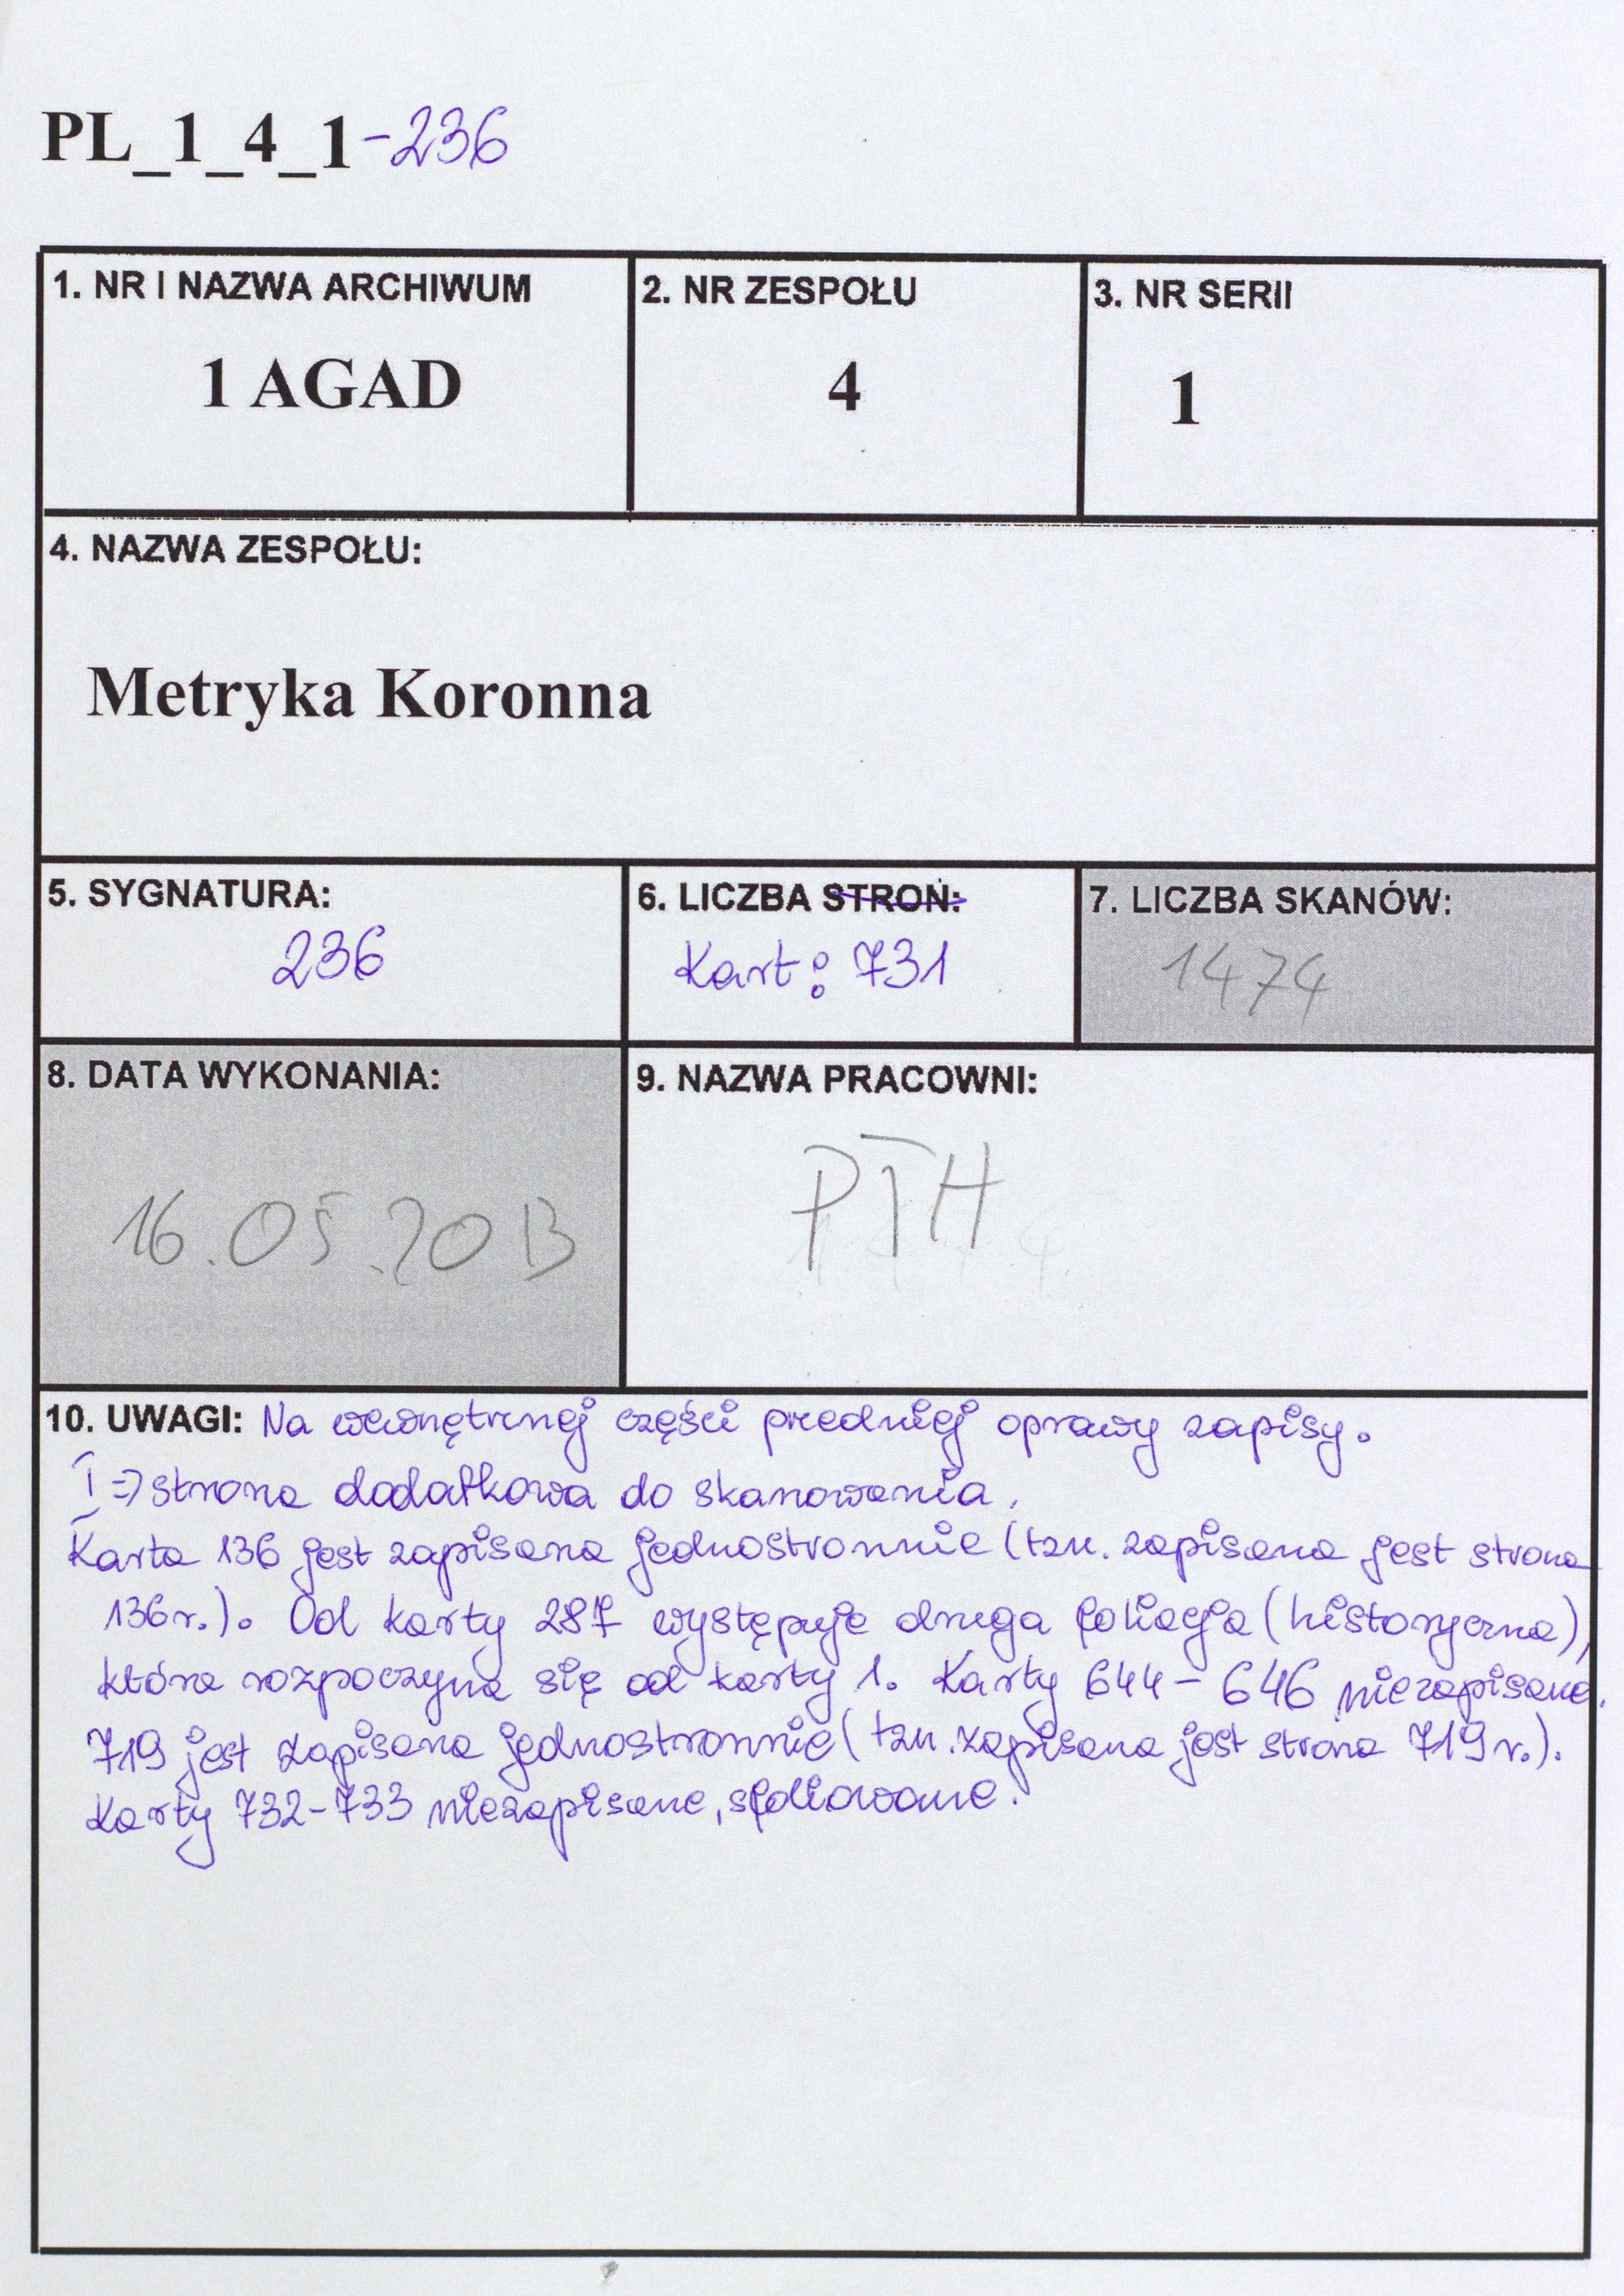 PL_1_4_1-236
1. NR I NAZWA ARCHIWUM
1 AGAD
2. NR ZESPOŁU
4
3. NR SERII
1
4. NAZWA ZESPOŁU:
Metryka Koronna
5. SYGNATURA:
236
6. LICZBA STRON:
Kart: 731
7. LICZBA SKANÓW:
1474
8. DATA WYKONANIA:
16.05.2013
9. NAZWA PRACOWNI:
PTH
10. UWAGI: Na wewnętrznej części przedniej oprawy zapisy.
I => strona dodatkowa do skanowania.
Karta 136 jest zapisana jednostronnie (tzn. zapisana jest strona
136r.). Od karty 287 występuje druga foliacja (historyczna),
która rozpoczyna się od karty 1. Karty 644-646 niezapisane.
719 jest zapisana jednostronnie (tzn. zapisana jest strona 719r.).
Karty 732-733 niezapisane, sfoliowane.